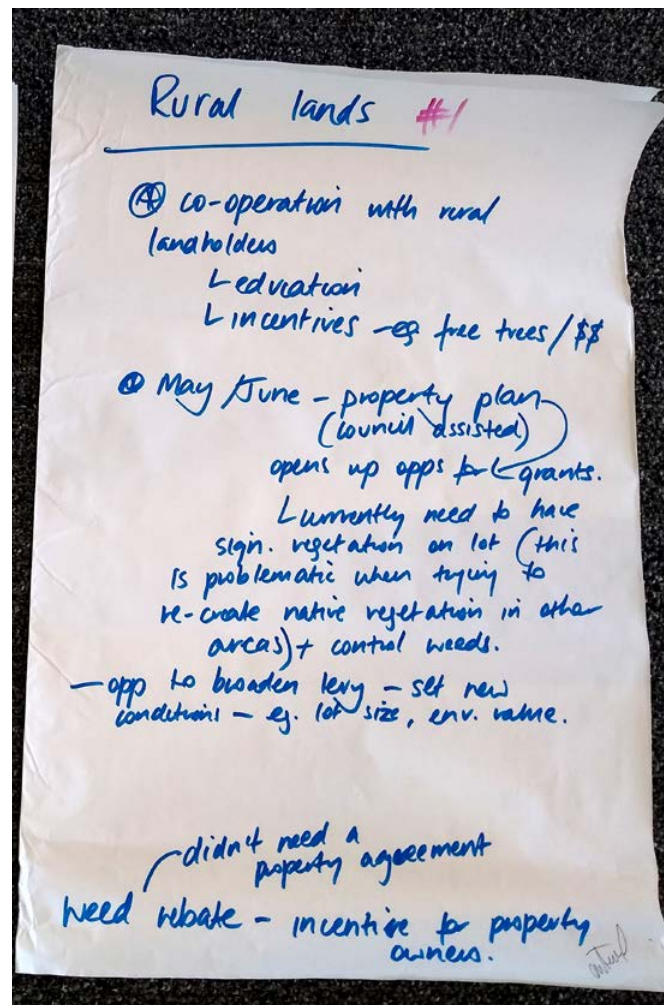 Rural lands #1
④ co-operation with rural
landholders
└ education
└ incentives - eg free trees / $$
May / June - property plan
(council assisted)
opens up opps for grants.
└ currently need to have
sign. vegetation on lot (this
is problematic when trying to
re-create native vegetation in other
areas) + control weeds.
- opp to broaden levy - set new
conditions - eg. lot size, env. value.
didn't need a
property agreement
weed rebate - incentive for property
owners.